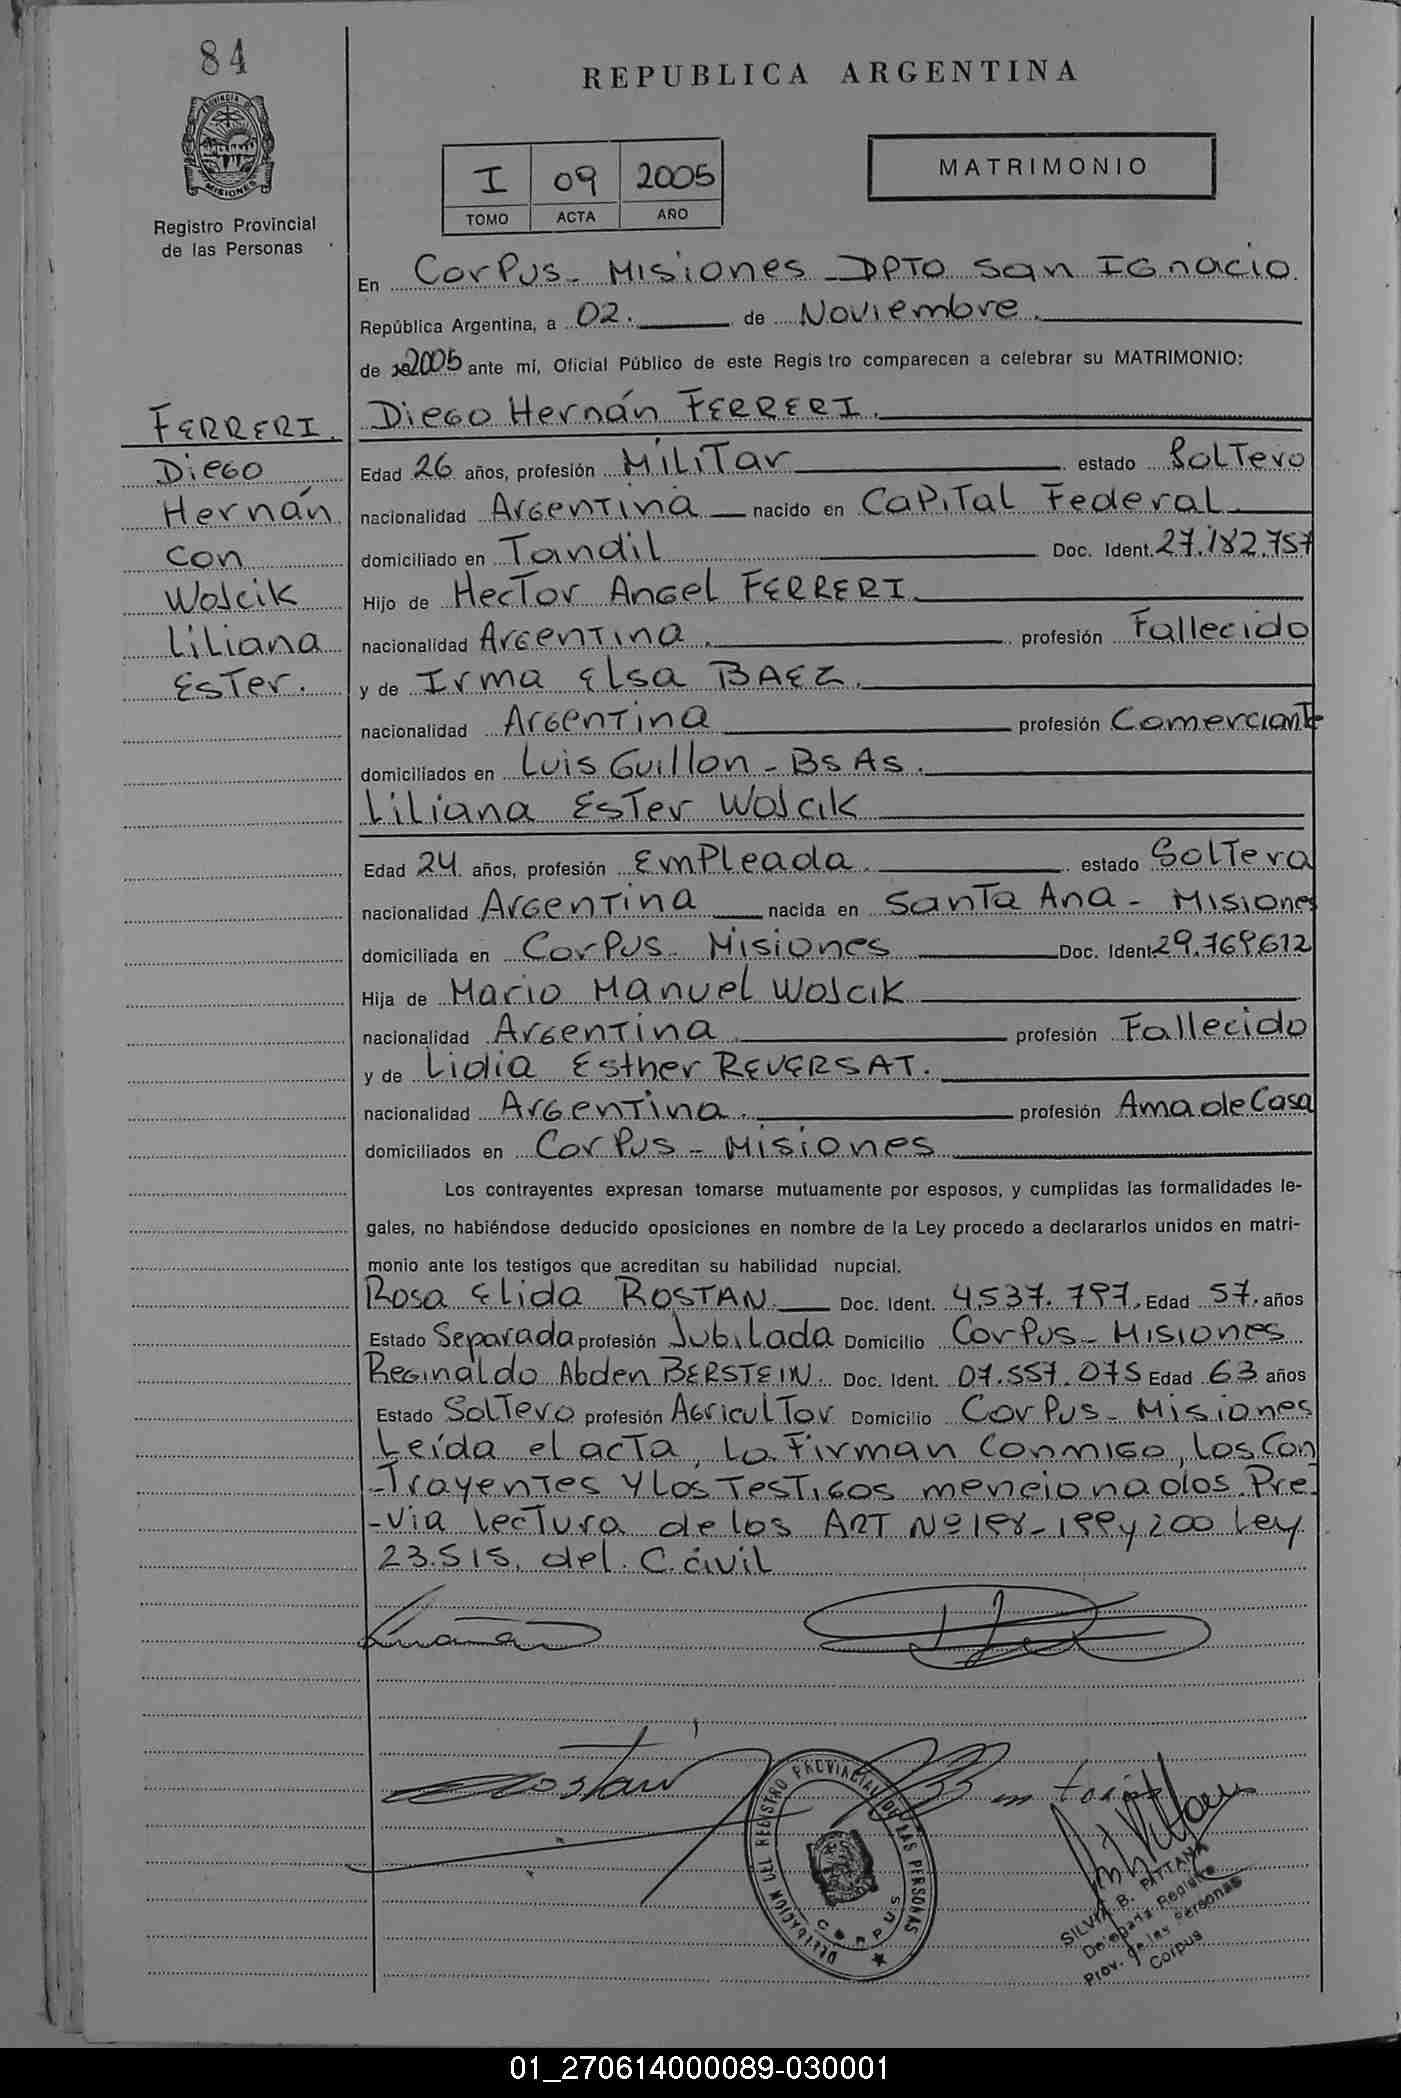 84
REPUBLICA ARGENTINA
PROVINCIA DE
MISIONES
Registro Provincial
de las Personas
MATRIMONIO
I 09 2005
TOMO ACTA AÑO
En Corpus - Misiones DPTO San Ignacio.
República Argentina, a 02. de Noviembre.
de 2005 ante mí, Oficial Público de este Registro comparecen a celebrar su MATRIMONIO:
FERRERI.
Diego
Hernán
con
Wojcik
Liliana
Ester.
Diego Hernán FERRERI.
Edad 26 años, profesión Militar estado Soltero
nacionalidad Argentina nacido en Capital Federal
domiciliado en Tandil Doc. Ident. 27.182.757
Hijo de Hector Angel FERRERI.
nacionalidad Argentina. profesión Fallecido
y de Irma Elsa BAEZ.
nacionalidad Argentina profesión Comerciante
domiciliados en Luis Guillon - Bs As.
Liliana Ester Wojcik
Edad 24 años, profesión Empleada. estado Soltera
nacionalidad Argentina nacida en Santa Ana - Misiones
domiciliada en Corpus - Misiones Doc. Ident 29.769.612
Hija de Mario Manuel Wojcik
nacionalidad Argentina. profesión Fallecido
y de Lidia Esther REVERSAT.
nacionalidad Argentina. profesión Ama de Casa
domiciliados en Corpus - Misiones
Los contrayentes expresan tomarse mutuamente por esposos, y cumplidas las formalidades le-
gales, no habiéndose deducido oposiciones en nombre de la Ley procedo a declararlos unidos en matri-
monio ante los testigos que acreditan su habilidad nupcial.
Rosa Elida ROSTAN Doc. Ident. 4.537.797. Edad 57. años
Estado Separada profesión Jubilada Domicilio Corpus - Misiones
Reginaldo Abden BERSTEIN. Doc. Ident. 07.557.075 Edad 63 años
Estado Soltero profesión Agricultor Domicilio Corpus - Misiones
Leída el acta, la Firman conmigo, los Con
-Trayentes y los Testigos mencionados. Pre-
-via lectura de los ART Nº 198-199 y 200 Ley
23.515. del C. civil
Rostan
DELEGACION DEL REGISTRO PROVINCIAL DE LAS PERSONAS
CORPUS
SILVIA B. PITTANA
Delegada Registro
Prov. de las Personas
Corpus
01_270614000089-030001